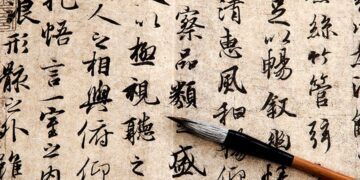 絲竹管弦
足以暢敘幽情
清惠風和暢仰
察品類之盛
以極視聽之
人之相與俯仰
抱悟言一室之內
浪形骸之外雖